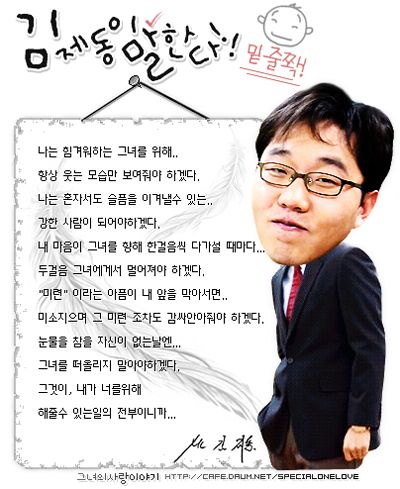 김제동이 말한다!
밑줄쫙!
나는 힘겨워하는 그녀를 위해..
항상 웃는 모습만 보여줘야 하겠다.
나는 혼자서도 슬픔을 이겨낼수 있는..
강한 사람이 되어야하겠다.
내 마음이 그녀를 향해 한걸음씩 다가설 때마다...
두걸음 그녀에게서 멀어져야 하겠다.
"미련" 이라는 아픔이 내 앞을 막아서면..
미소지으며 그 미련 조차도 감싸안아줘야 하겠다.
눈물을 참을 자신이 없는날엔...
그녀를 떠올리지 말아야하겠다.
그것이, 내가 너를위해
해줄수 있는일의 전부이니까...
그녀의사랑이야기 HTTP://CAFE.DAUM.NET/SPECIALONELOVE